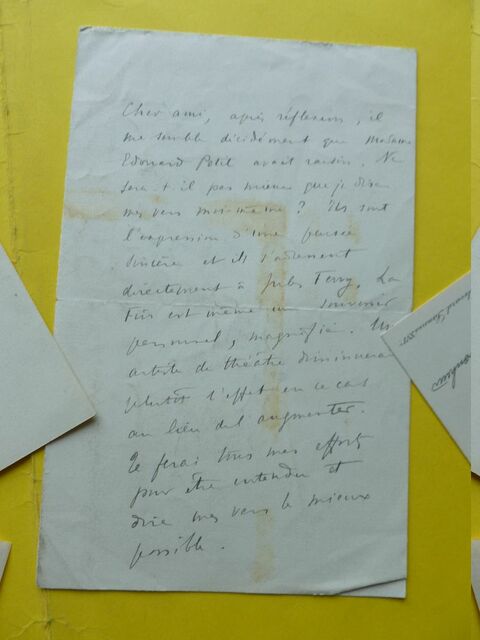 Cher ami, après réflexion, il
me semble décidément que Madame
Edouard Petit avait raison. Ne
sera-t-il pas mieux que je dise
mes vers moi-même ? Ils sont
l'expression d'une pensée
sincère et ils s'adressent
directement à Jules Ferry. La
fin est même un souvenir
personnel, magnifié. Un
artiste de théâtre diminuerait
plutôt l'effet en ce cas
au lieu de l'augmenter.
Je ferai tous mes efforts
pour être entendu et
dire mes vers le mieux
possible.